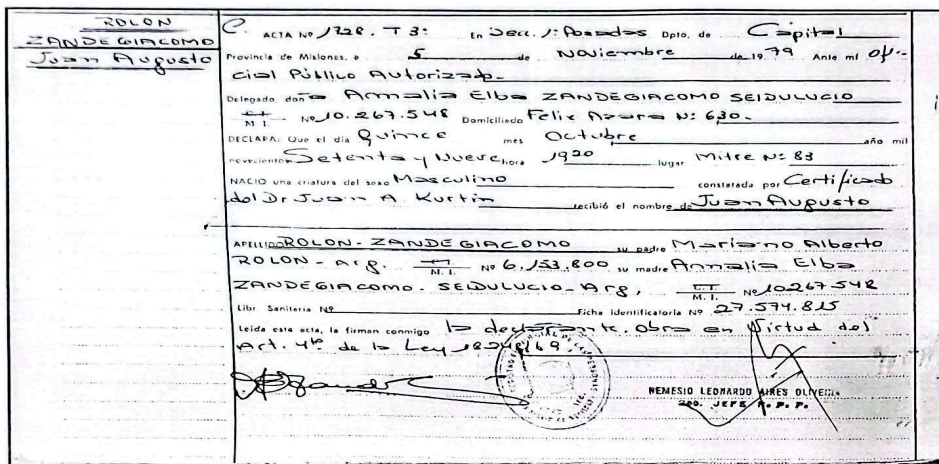 ROLON
ZANDEGIACOMO
Juan Augusto
C. ACTA Nº 1728. T 3: En Secc. 1: Posadas Dpto. de Capital
Provincia de Misiones, a 5 de Noviembre de 1979 Ante mi Ofi-
cial Público Autorizado-
Delegado, doña Amalia Elba ZANDEGIACOMO SEIDULUCIO
M. I. Nº 10.267.548 Domiciliado Felix Azara Nº 630-
DECLARA: Que el día Quince mes Octubre año mil
novecientos Setenta y Nueve hora 1920 lugar Mitre Nº 83
NACIO una criatura del sexo Masculino constatada por Certificado
del Dr Juan A. Kurtin recibió el nombre de Juan Augusto
APELLIDO ROLON-ZANDEGIACOMO su padre Mariano Alberto
ROLON-Arg. M. I. Nº 6.153.800 su madre Amalia Elba
ZANDEGIACOMO-SEIDULUCIO-Arg, M. I. Nº 10267548
Libr. Sanitaria Nº Ficha identificatoria Nº 27.574.815
Leída esta acta, la firman conmigo la declarante. Obra en Virtud del
Art. 4to de la Ley 18248/69
REMESIO LEONARDO AIRES OLIVEIRA
2DO. JEFE R. P. P.